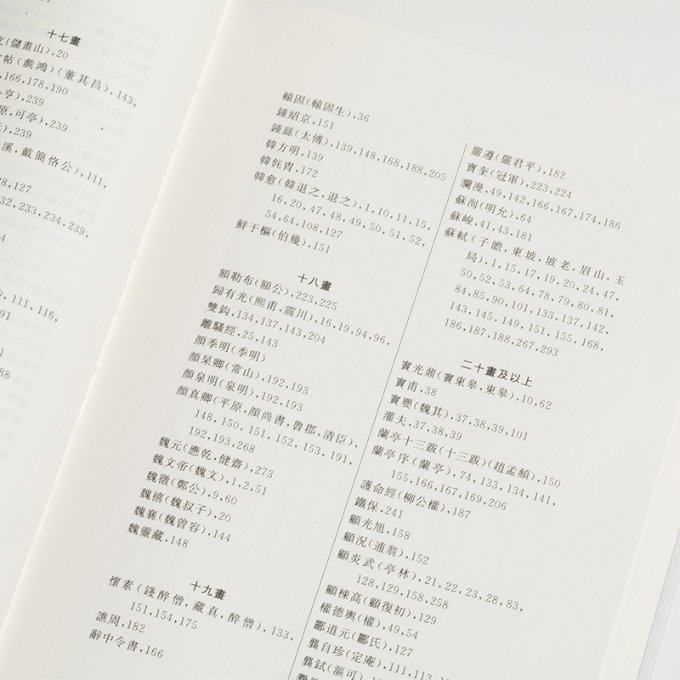 十七畫
(儲畫山),20
帖(戲鴻)(董其昌),143,
166,178,190
亭),239
原,可亭),239
),239
溪,戴簡恪公),111,
8,127
32,233,234,239,
),111,116,
91
188
轅固(轅固生),36
鍾紹京,151
鍾繇(太傅),139,148,168,188,205
韓方明,139
韓侂胄,172
韓愈(韓退之,退之),1,10,11,15,
16,20,47,48,49,50,51,52,
54,64,108,127
鮮于樞(伯幾),151
十八畫
額勒布(額公),223,225
歸有光(熙甫,震川),16,19,94,96,
雙鉤,134,137,143,204
離騷經,25,143
顏季明(季明)
顏杲卿(常山),192,193
顏泉明(泉明),192,193
顏真卿(平原,顏尚書,魯郡,清臣),
148,150,151,152,153,191,
192,193,268
魏元(應乾,健齋),273
魏文帝(魏文),1,2,51
魏徵(鄭公),9,60
魏禧(魏叔子),20
魏襄(魏曾容),144
魏靈藏,148
十九畫
懷素(錢醉僧,藏真,醉僧),133,
151,154,175
譙周,182
辭中令書,166
嚴遵(嚴君平),182
竇奎(冠軍),223,224
瀾漫,49,142,166,167,174,186
蘇洵(明允),64
蘇峻,41,43,181
蘇軾(子瞻,東坡,坡老,眉山,玉
局),1,15,17,19,20,24,47,
50,52,53,64,78,79,80,81,
84,85,90,101,133,137,142,
143,145,149,151,155,168,
186,187,188,267,293
二十畫及以上
竇光鼐(竇東皋,東皋),10,62
竇甫,38
竇嬰(魏其),37,38,39,101
灌夫,37,38,39
蘭亭十三跋(十三跋)(趙孟頫),150
蘭亭序(蘭亭),74,133,134,141,
155,166,167,169,206
護命經(柳公權),187
鐵保,241
顧光旭,158
顧況(逋翁),152
顧炎武(亭林),21,22,23,28,83,
128,129,158,258
顧棟高(顧復初),129
權德輿(權),49,54
酈道元(酈氏),127
龔自珍(定庵),111,113
龔鉽(漚可),111